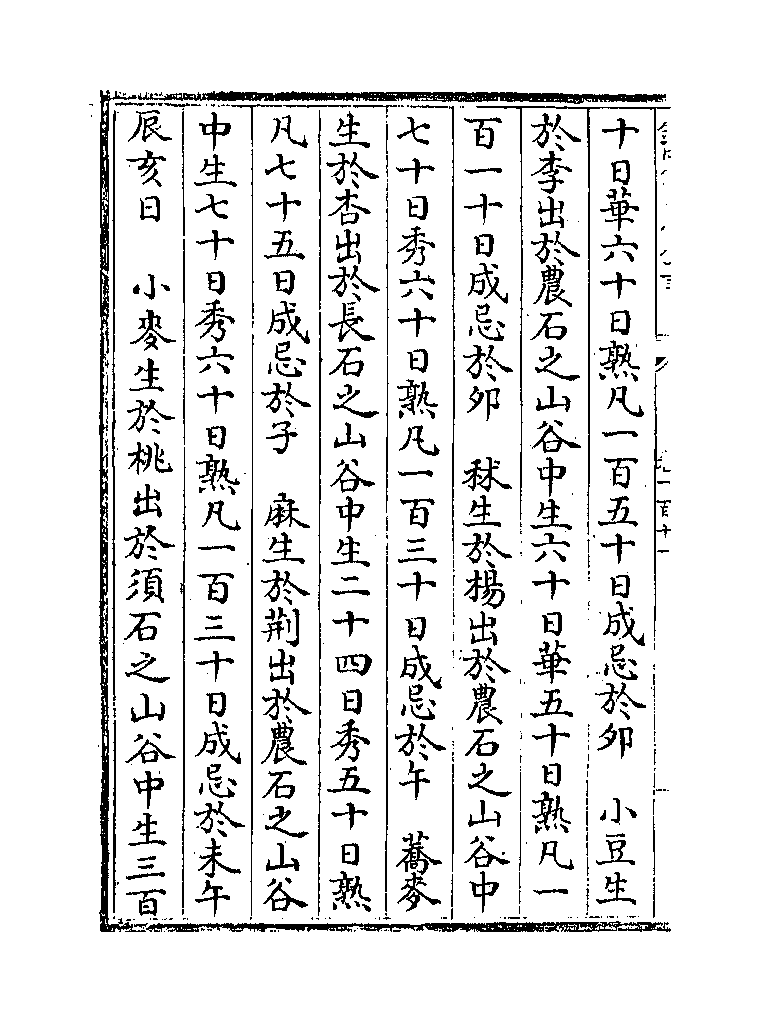 十日華六十日熟凡一百五十日成忌於夘　小豆生
於李出於農石之山谷中生六十日華五十日熟凡一
百一十日成忌於夘　秫生於楊出於農石之山谷中
七十日秀六十日熟凡一百三十日成忌於午　蕎麥
生於杏出於長石之山谷中生二十四日秀五十日熟
凡七十五日成忌於子　麻生於荆出於農石之山谷
中生七十日秀六十日熟凡一百三十日成忌於未午
辰亥日　小麥生於桃出於須石之山谷中生三百